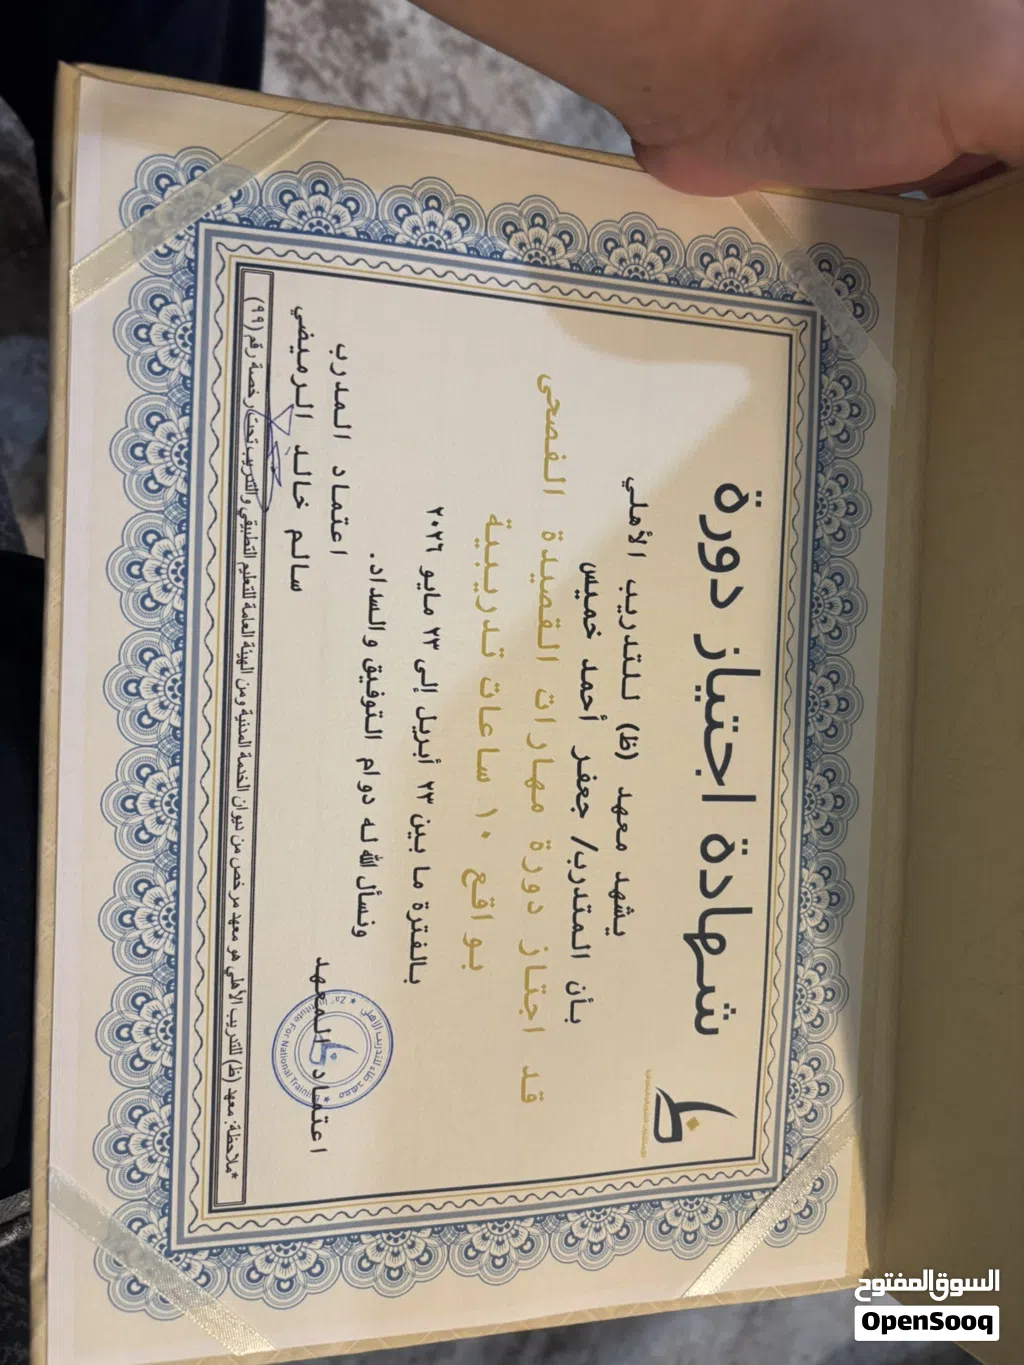 شهادة اجتياز دورة
يشهد معهد (ظ) للتدريب الأهلي
بأن المتدرب/ جعفر أحمد خميس
قد اجتاز دورة مهارات القصيدة الفصحى
بواقع ١٠ ساعات تدريبية
بالفترة ما بين ٢٣ أبريل إلى ٢٣ مايو ٢٠٢٦
ونسأل الله له دوام التوفيق والسداد.
اعتماد المعهد
اعتماد المدرب
سالم خالد الرميضي
معهد ظاء للتدريب الأهلي
Za' Institute For National Training
*ملاحظة: معهد (ظ) للتدريب الأهلي هو معهد مرخص من ديوان الخدمة المدنية ومن الهيئة العامة للتعليم التطبيقي والتدريب تحت رخصة رقم (٩٩)
السوق المفتوح
OpenSooq